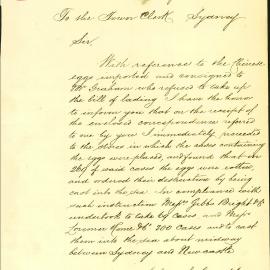 To the Town Clerk Sydney
Sir
With reference to the Chinese
eggs imported and consigned to
Mr Graham who refused to take up
the bill of lading I have the honor
to inform you that on the receipt of
the enclosed correspondence referred
to me by you I immediately proceeded
to the stores in which the cases containing
the eggs were placed, and found that in
269 of said cases the eggs were rotten,
and ordered their destruction by being
cast into the sea. In compliance with
such instruction Messrs Gibbs Bright & Co
undertook to take 69 cases and Messrs
Lorimer Rome & Co 200 cases and to cast
them into the sea about midway
between Sydney and Newcastle